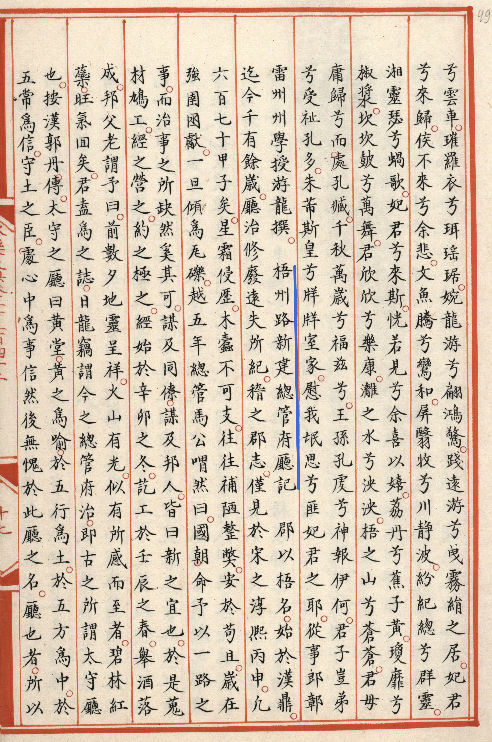 兮雲車璀羅衣兮珥瑶琚婉龍游兮翩鴻驁踐遠游兮曳霧綃之居妃君
兮來歸侯不來兮余悲文魚騰兮鸞和屏翳牧兮川静波紛紀總兮群靈
湘靈瑟兮蝸歌妃君兮來斯恍若見兮余喜以嬉荔丹兮蕉子黄瓊靡兮
椒漿坎坎鼓兮萬舞君欣欣兮樂康灕之水兮泱泱梧之山兮蒼蒼君毋
庸歸兮而處孔臧千秋萬歲兮福兹兮王孫孔虔兮神報伊何君子豈弟
兮受祉孔多朱芾斯皇兮牂牂室家慰我氓思兮匪妃君之耶從事郎鄣
雷州州學授游龍撰 梧州路新建總管府廳記 郡以梧名始於漢鼎
迄今千有餘歲廳治修廢遠失所紀稽之郡志僅見於宋之淳熙丙申凡
六百七十甲子矣星霜侵歷木蠹不可支往往補陋整獘安於苟且歲在
強圉困獻一旦傾爲瓦礫越五年總管馬公喟然曰國朝命予以一路之
事而治事之所缺然奚其可謀及同僚謀及邦人皆曰新之宜也於是蒐
材鳩工經之營之約之極之經始於辛卯之冬訖工於壬辰之春舉酒落
成邦父老謂予曰前數夕地靈呈祥火山有光似有所感而至者碧林紅
蘂旺氣回矣君盍爲之誌曰龍竊謂今之總管府治即古之所謂太守廳
也按漢郭丹傳太守之廳曰黄堂黄之爲喻於五行爲土於五方爲中於
五常爲信守土之臣處心中爲事信然後無愧於此廳之名廳也者所以